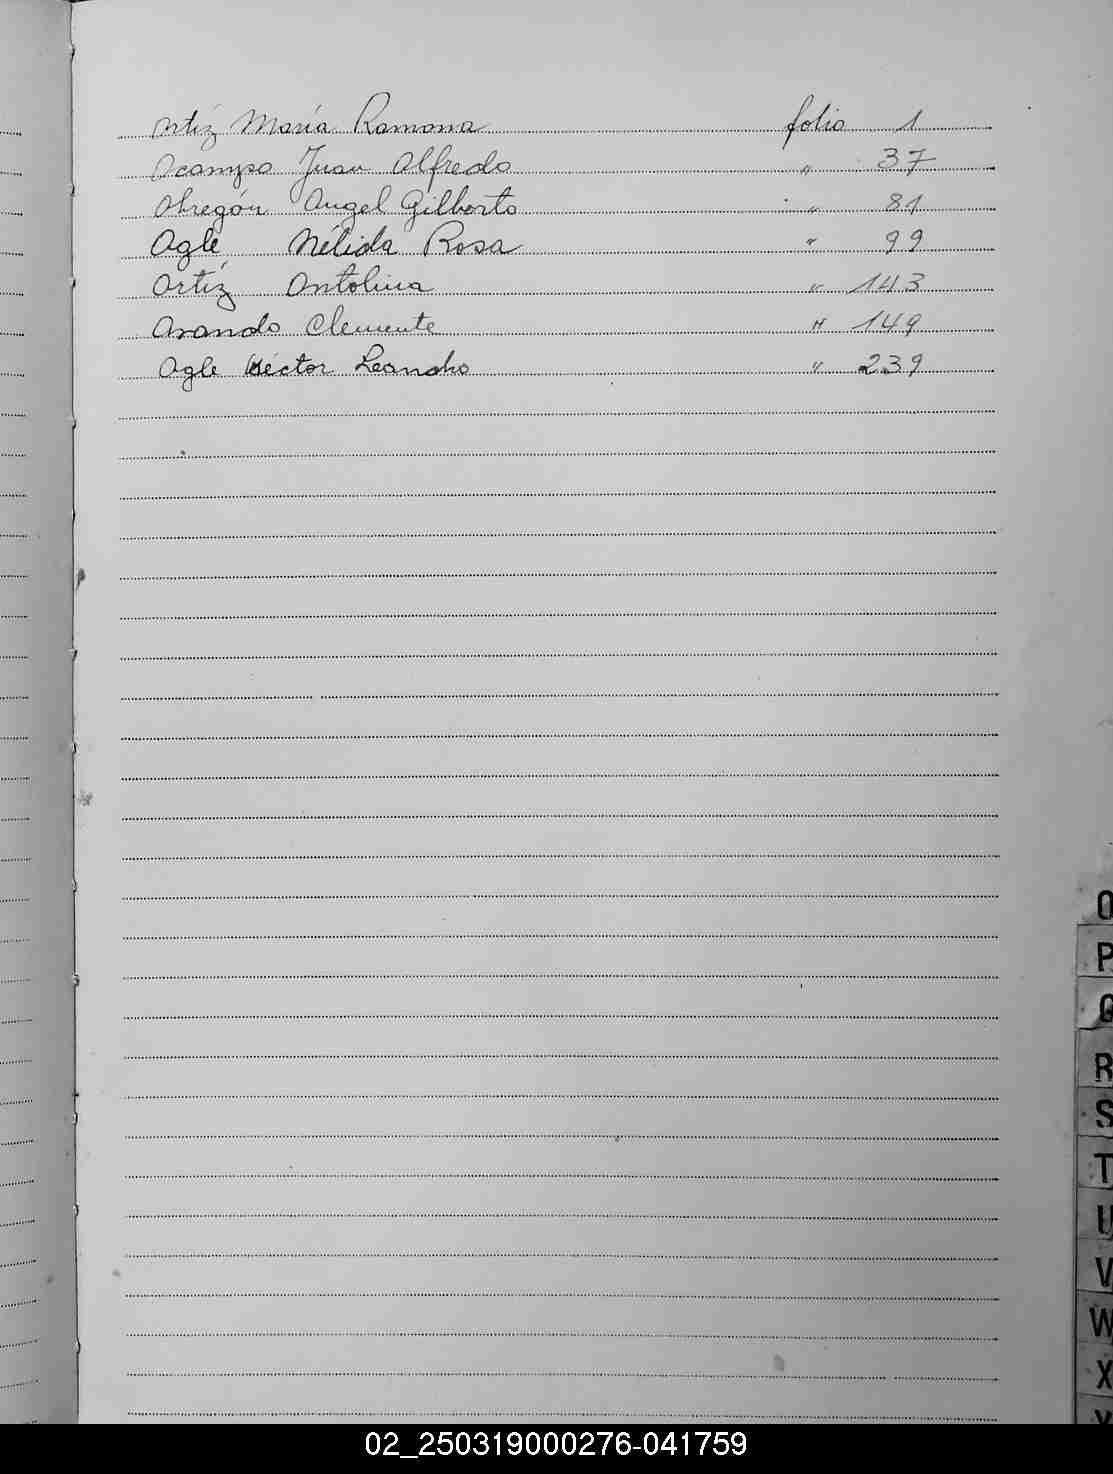 Ortíz María Ramona folio 1
Ocampo Juan Alfredo " 37
Obregón Angel Gilberto " 81
Ogle Nélida Rosa " 99
Ortíz Antolina " 143
Orando Clemente " 149
Ogle Héctor Leandro " 239
O
P
Q
R
S
T
U
V
W
X
Y
02_250319000276-041759